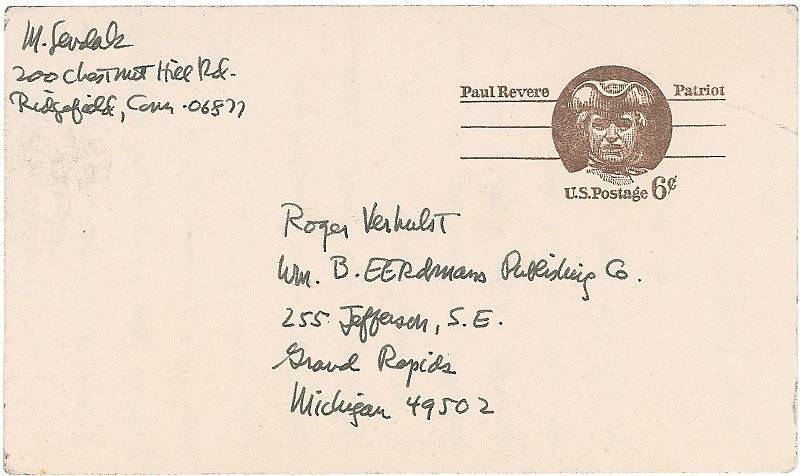 M. Sendak
200 Chestnut Hill Rd.
Ridgefield, Conn. 06877
Paul Revere Patriot
U.S. Postage 6¢
Roger Verhulst
Wm. B. EERdmans Publishing Co.
255 Jefferson, S.E.
Grand Rapids
Michigan 49502